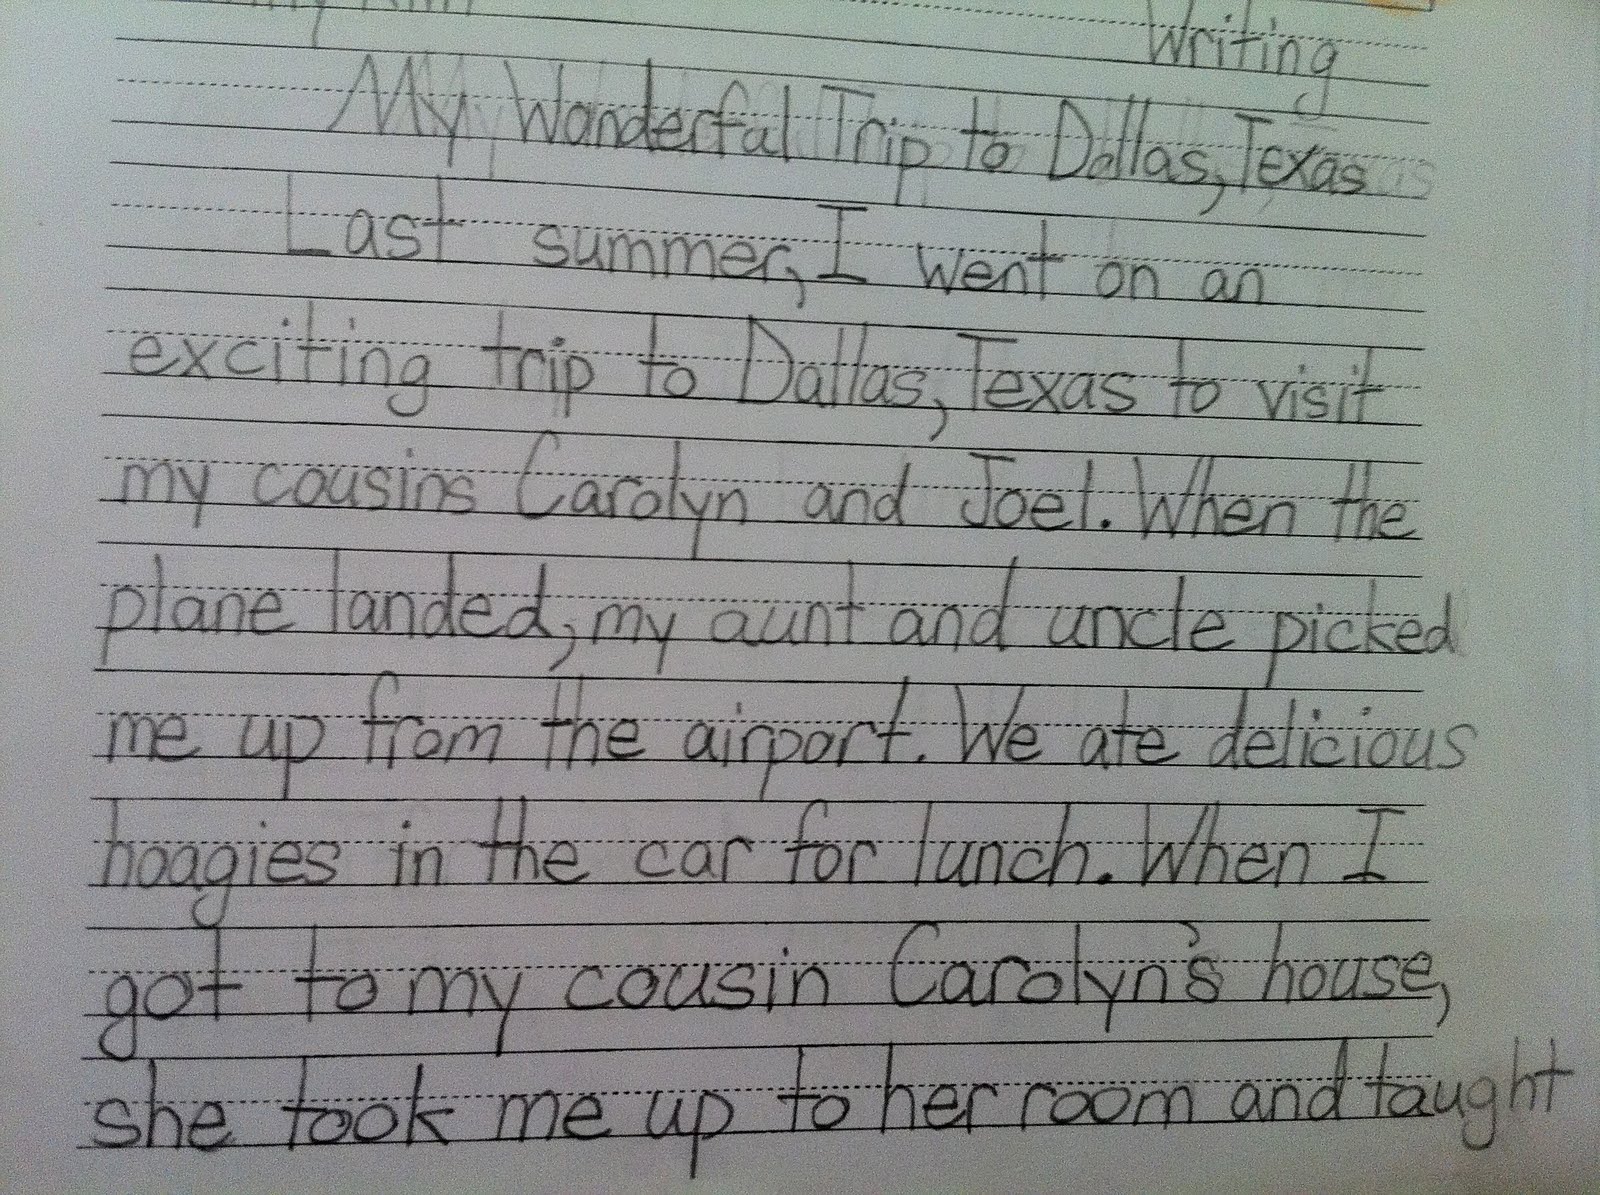 Writing
My Wonderful Trip to Dallas, Texas
Last summer, I went on an
exciting trip to Dallas, Texas to visit
my cousins Carolyn and Joel. When the
plane landed, my aunt and uncle picked
me up from the airport. We ate delicious
hoagies in the car for lunch. When I
got to my cousin Carolyn's house,
she took me up to her room and taught